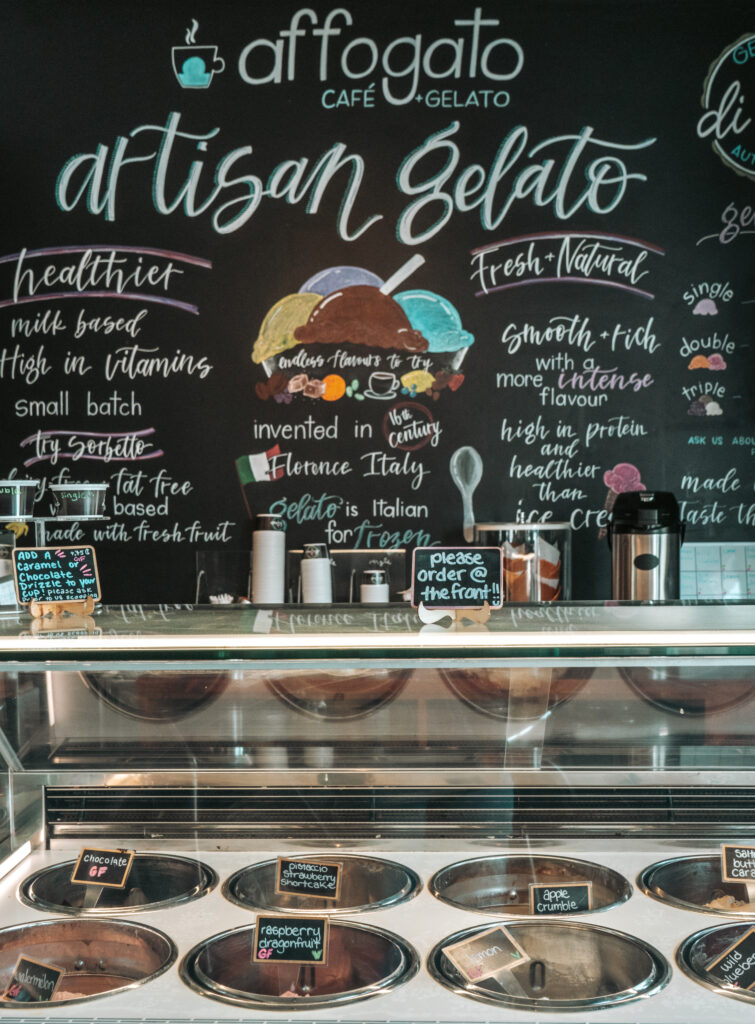 affogato
CAFÉ + GELATO
artisan gelato
healthier
milk based
High in vitamins
small batch
try Sorbetto
fat free
based
made with fresh fruit
endless flavours to try
invented in 16th century
Florence Italy
gelato is Italian
for frozen
Fresh + Natural
Smooth + rich
with a
more intense
flavour
high in protein
and
healthier
than
ice
GE
di
AU
ge
single
double
triple
ASK US ABOU
made
Taste th
single
ADD A
Caramel or
Chocolate
Drizzle to your
cup! please
please
order @
the front!!
chocolate
GF
pistaccio
strawberry
shortcake
apple
crumble
Salt
butt
Cara
raspberry
dragonfruit
GF V
lemon
wild
blueber